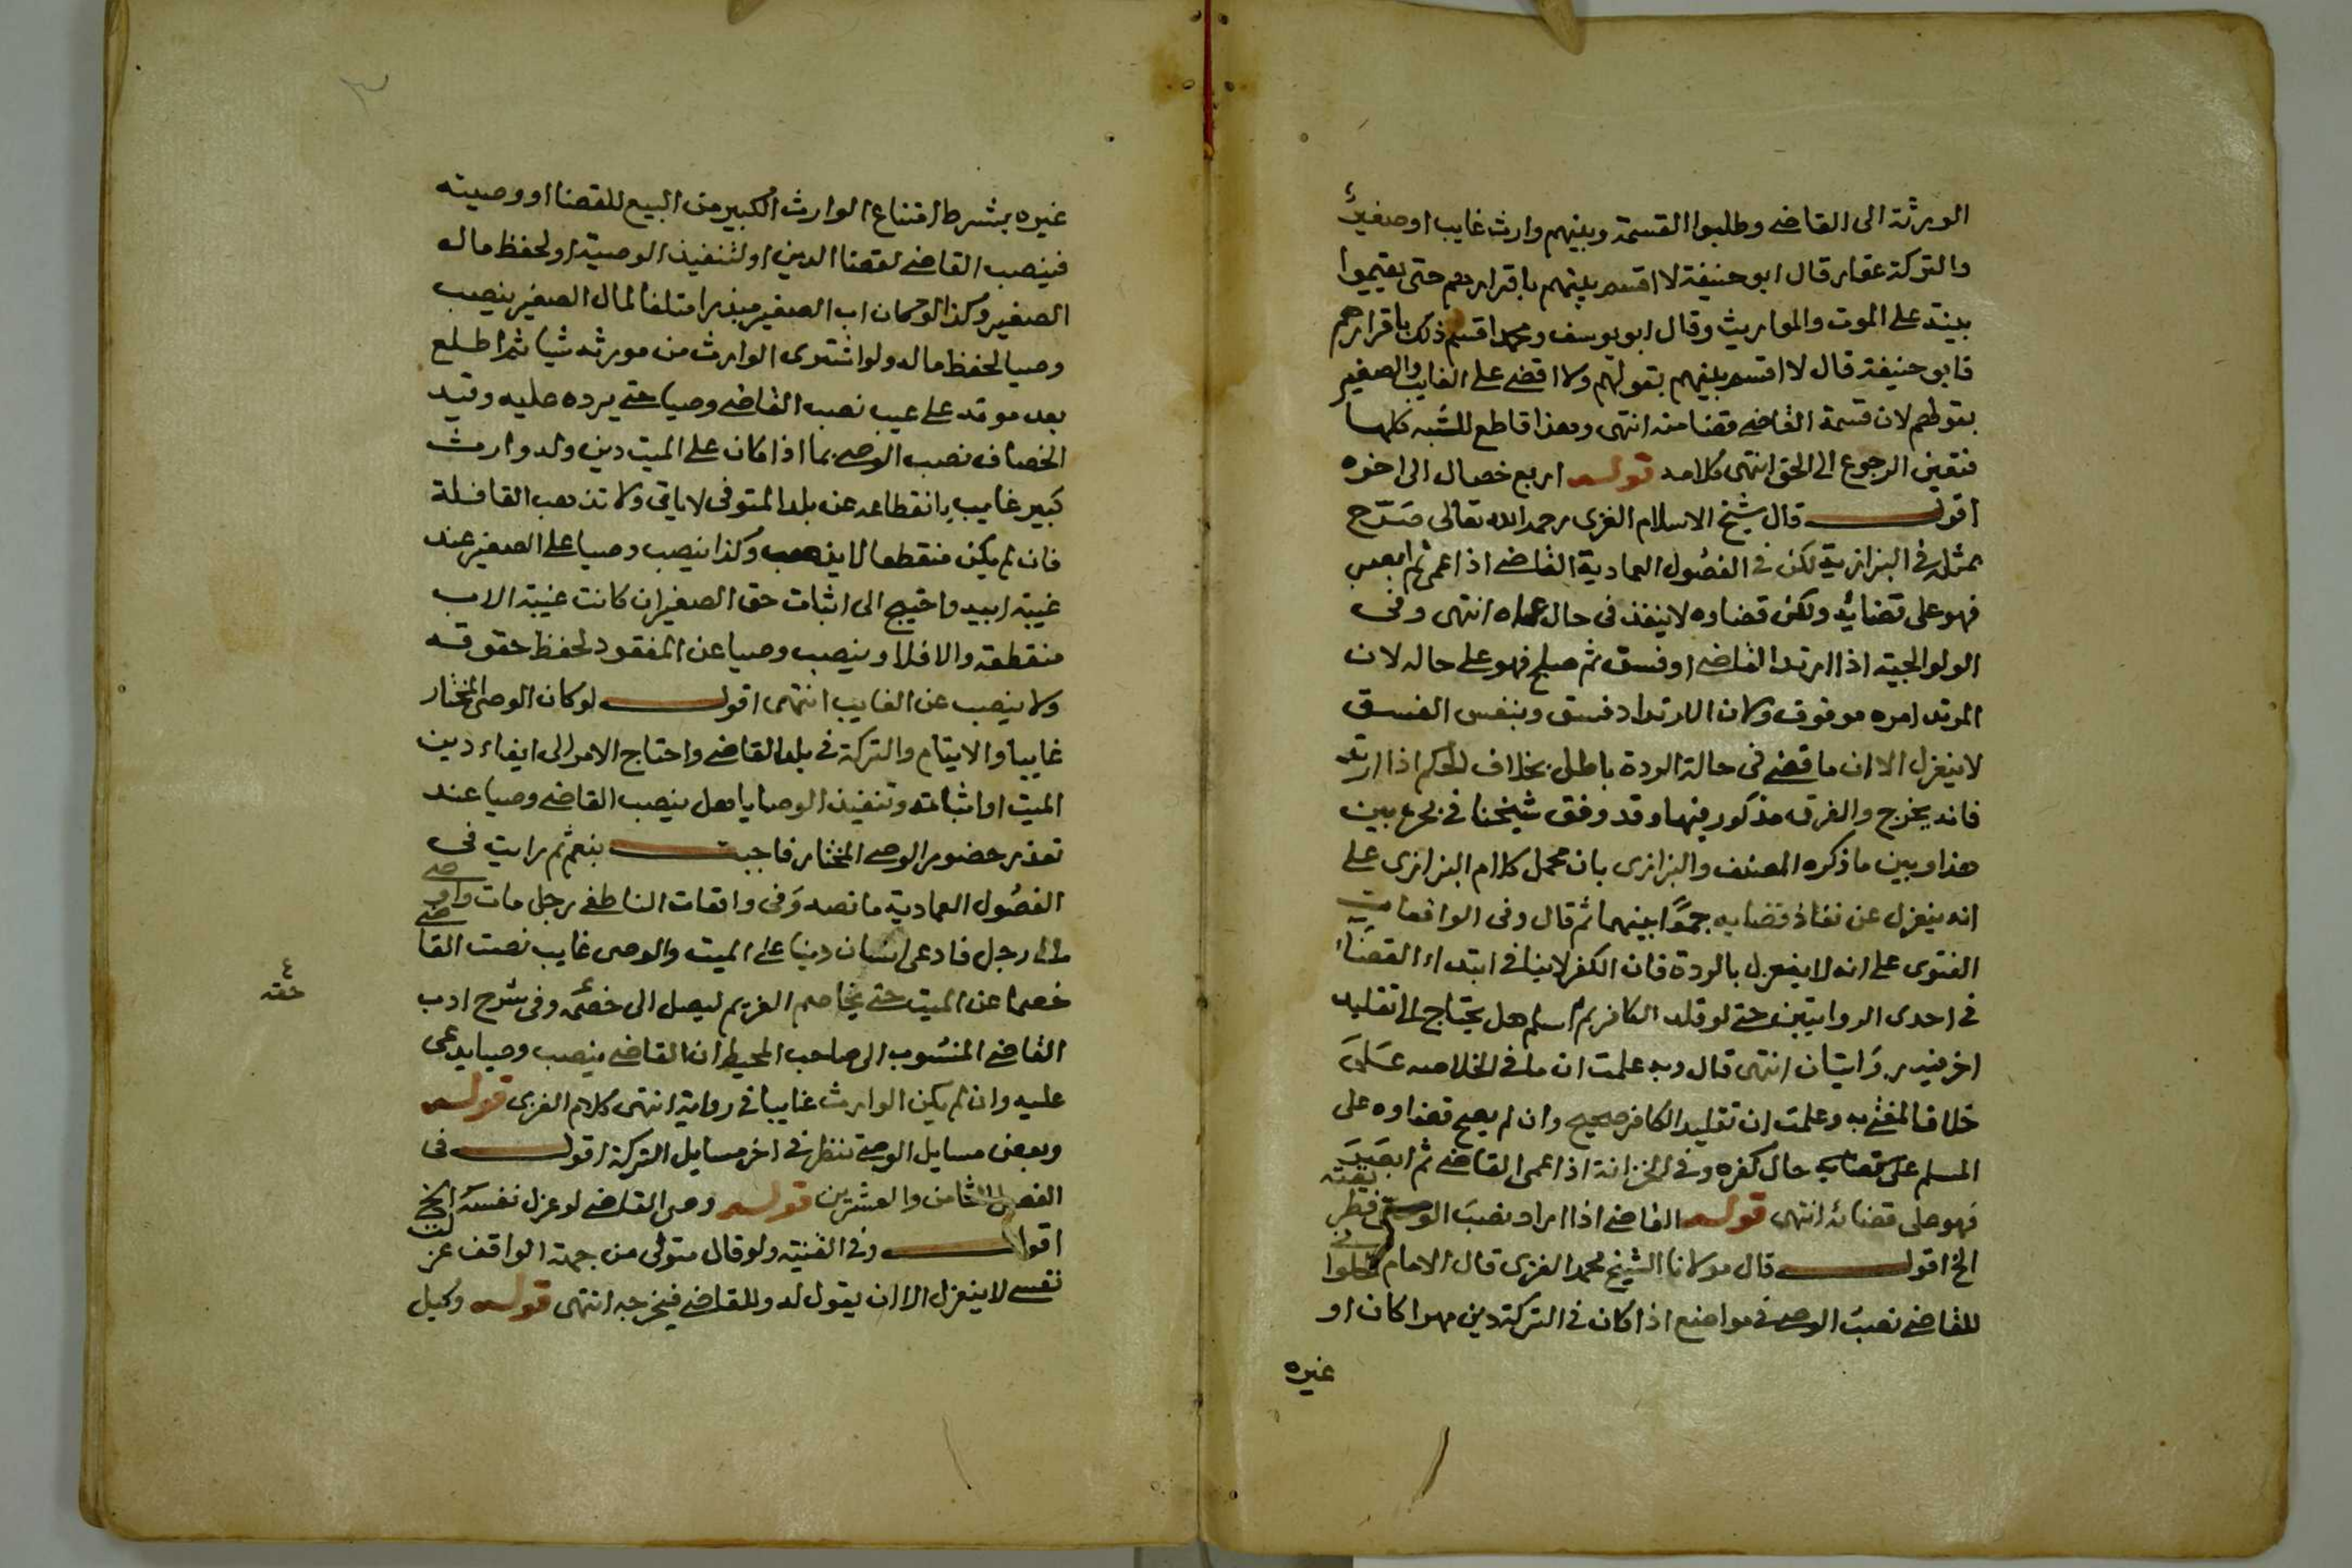 الورثة الى القاضى وطلبوا القسمة وبينهم وارث غايب او صغير
والتركة عقار قال ابو حنيفة لا اقسم بينهم باقرارهم حتى يقيموا
بينة على الموت والمواريث وقال ابو يوسف ومحمد اقسم ذلك باقرارهم
فابو حنيفة قال لا اقسم بينهم بقولهم ولا اقضى على الغايب والصغير
بقولهم لان قسمة القاضى قضا منه انتهى وهذا قاطع للشبه كلها
فتعين الرجوع الى الحق انتهى كلامه قوله اربع خصال الى اخره
اقول قال شيخ الاسلام الغزى رحمه الله تعالى صَرّح
بمثله فى البزازية لكن فى الفصُول العمادية القاضى اذا عمى ثم ابصر
فهو على قضائه ولكن قضاوه لا ينفذ فى حال عماه انتهى وفى
الولوالجية اذا ارتد القاضى او فسق ثم صلح فهو على حاله لان
المرتد امره موقوف ولان الارتداد فسق وبنفس الفسق
لا ينعزل الا ان ما قضى فى حالة الردة باطل بخلاف الحكم اذا ارتد
فانه يخرج والفرق مذكور فيها وقد وفق شيخنا فى بحره بين
هذا وبين ما ذكره المصنف والبزازى بان محمل كلام البزازى على
انه ينعزل عن نفاذ قضايه جمعًا بينهما ثم قال وفى الواقعات
الفتوى على انه لا ينعزل بالردة فان الكفر لا ينافى ابتداء القضاء
فى احدى الروايتين حتى لو قلد الكافر ثم اسلم هل يحتاج الى تقليد
اخر فيه روَايتان انتهى قال وبه علمت ان ما فى الخلاصه عَلَى
خلاف المفتى به وعلمت ان تقليد الكافر صحيح وان لم يصح قضاوه على
المسلم على قضايه حال كفره وفى الخزانة اذا عمى القاضى ثم ابصَرَ
فهو على قضائه انتهى قوله القاضى اذا اراد نصبَ الوصى
الخ اقول قال مولانا الشيخ محمد الغزى قال الامام
للقاضى نصبُ الوصى فى مواضع اذا كان فى التركة دين مهرا كان او
غيره
غيره بشرط امتناع الوارث الكبير من البيع للقضا او وصيته
فينصب القاضى لقضا الدين او لتنفيذ الوصية او لحفظ مال
الصغير وكذا لو كان اب الصغير مبذرا متلفا لمال الصغير ينصب
وصيا لحفظ ماله ولو اشترى الوارث من مورثه شيا ثم اطلع
بعد موته على عيب نصب القاضى وصيا حتى يرده عليه وقيد
الخصاف نصب الوصى بما اذا كان على الميت دين وله وارث
كبير غايب بانقطاعه عن بلد المتوفى لا ياتى ولا تذهب القافلة
فان لم يكن منقطعا لا ينصب وكذا ينصب وصيا على الصغير عند
غيبة ابيه واحتيج الى اثبات حق الصغير ان كانت غيبة الاب
منقطعة والا فلا وينصب وصيا عن المفقود لحفظ حقوقه
ولا ينصب عن الغايب انتهى اقول لو كان الوصى المختار
غايبا والايتام والتركة فى بلد القاضى واحتاج الامر الى ايفاء دين
الميت او اثباته وتنفيذ الوصايا هل ينصب القاضى وصيا عند
تعذر حضور الوصى المختار فاجبت بنعم ثم رايت فى
الفصُول العمادية ما نصه وَفى واقعات الناطفى رجل مات واوصى
الى رجل فادعى انسان دينا على الميت والوصى غايب نصب القاضى
خصما عن الميت حتى يخاصم الغريم ليصل الى حقه وفى شرح ادب
حقه
القاضى المنسُوب الى صاحب المحيط ان القاضى ينصب وصيا يدعى
عليه وان لم يكن الوارث غايبا فى رواية انتهى كلام الغزى قوله
وبعض مسايل الوصى تنظر فى اخر مسايل التركة اقول فى
الفصل الثامن والعشرين قوله وصى القاضى لو عزل نفسه الخ
اقول وفى القنية ولو قال متولى من جهة الواقف عزلت
نفسى لا ينعزل الا ان يقول له وللقاضى فيخرجه انتهى قوله وكيل